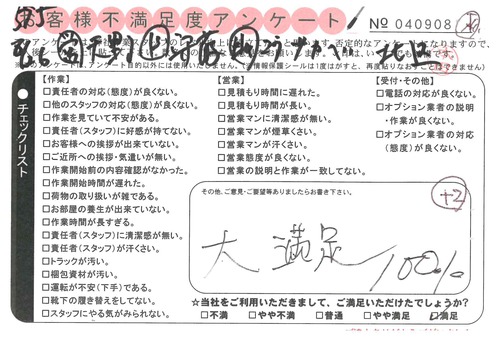 お客様不満足度アンケート
No 040908
チェックリスト
【作業】
□責任者の対応(態度)が良くない。
□他のスタッフの対応(態度)が良くない。
□作業を見ていて不安がある。
□責任者(スタッフ)に好感が持てない。
□お客様への挨拶が出来ていない。
□ご近所への挨拶・気遣いが無い。
□作業開始前の内容確認がなかった。
□作業開始時間が遅れた。
□荷物の取り扱いが雑である。
□お部屋の養生が出来ていない。
□作業時間が長すぎる。
□責任者(スタッフ)に清潔感が無い。
□責任者(スタッフ)が汗くさい。
□トラックが汚い。
□梱包資材が汚い。
□運転が不安(下手)である。
□靴下の履き替えをしてない。
□スタッフにやる気がみられない。
【営業】
□見積もり時間に遅れた。
□見積もり時間が長い。
□営業マンに清潔感が無い。
□営業マンが煙草くさい。
□営業マンが汗くさい。
□営業態度が良くない。
□営業の説明と作業が一致してない。
【受付・その他】
□電話の対応が良くない。
□オプション業者の説明
・作業が良くない。
□オプション業者の対応
(態度)が良くない。
その他、ご意見・ご要望等ありましたらお書き下さい。
+2
大満足 100%
☆当社をご利用いただきまして、ご満足いただけたでしょうか?
□不満 □やや不満 □普通 □やや満足 ☑満足